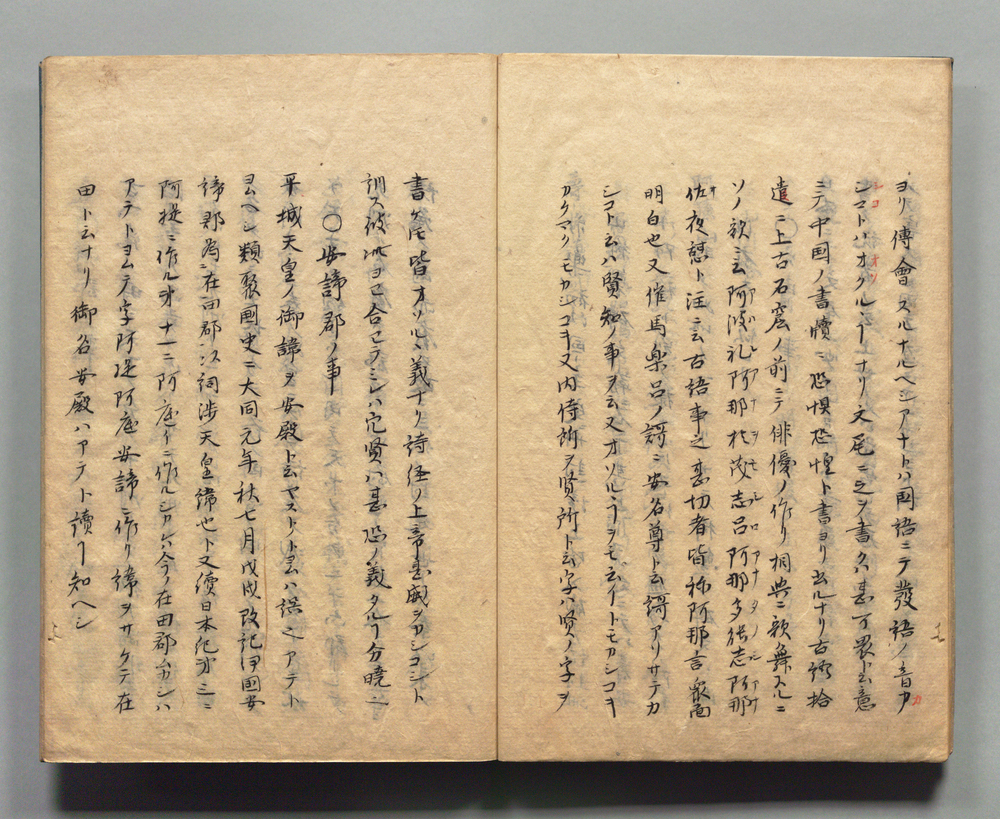 ヨリ傳會スルナルヘシアナトハ国語ニテ發語ノ音ア
シコトハオクルヿナリ文尾ニ之ヲ書クハ甚可畏ト云意
ニテ中国ノ書牘ニ恐惧恐惶ト書ヨリ出ルナリ古語拾
遺ニ上古石窟ノ前ニテ俳優ノ作リ相與ニ歌舞スルニ
ソノ歌ニ云阿波礼阿那於茂志呂阿那多能志阿那
佐夜憩ト注ニ云古語事之甚切者皆称阿那言衆面
明白也又催馬楽呂ノ謌ニ安名尊ト云謌アリサテカ
シコト云ハ賢知ノ事ヲ云又オソルヽヿヲモ云イトモカシコキ
カケマクモカシコキ又内侍所ヲ賢所ト云字ハ賢ノ字ヲ
書ケ𪜈皆オソルヽ義ナリ詩経ノ上帝甚威ヲカシコシト
訓ス彼此ヨミ合セテミレハ穴賢ハ甚恐ノ義タルヿ分曉之
〇安諦郡ノ事
平城天皇ノ御諱ヲ安殿ト云ヤスノト云ハ誤之アテト
ヨムヘシ類聚国史ニ大同元年秋七月戊戌改紀伊國安
諦郡為在田郡以詞渉天皇諱也ト又續日本紀第三ニ
阿提ニ作ル第十一ニ阿底イニ作ルシカレ𪜈今ノ在田郡ムカシハ
アテトヨムテ字阿提阿底安諦ニ作リ諱ヲサケテ在
田ト云ナリ御名安殿ハアテト讀ヿ知ヘシ